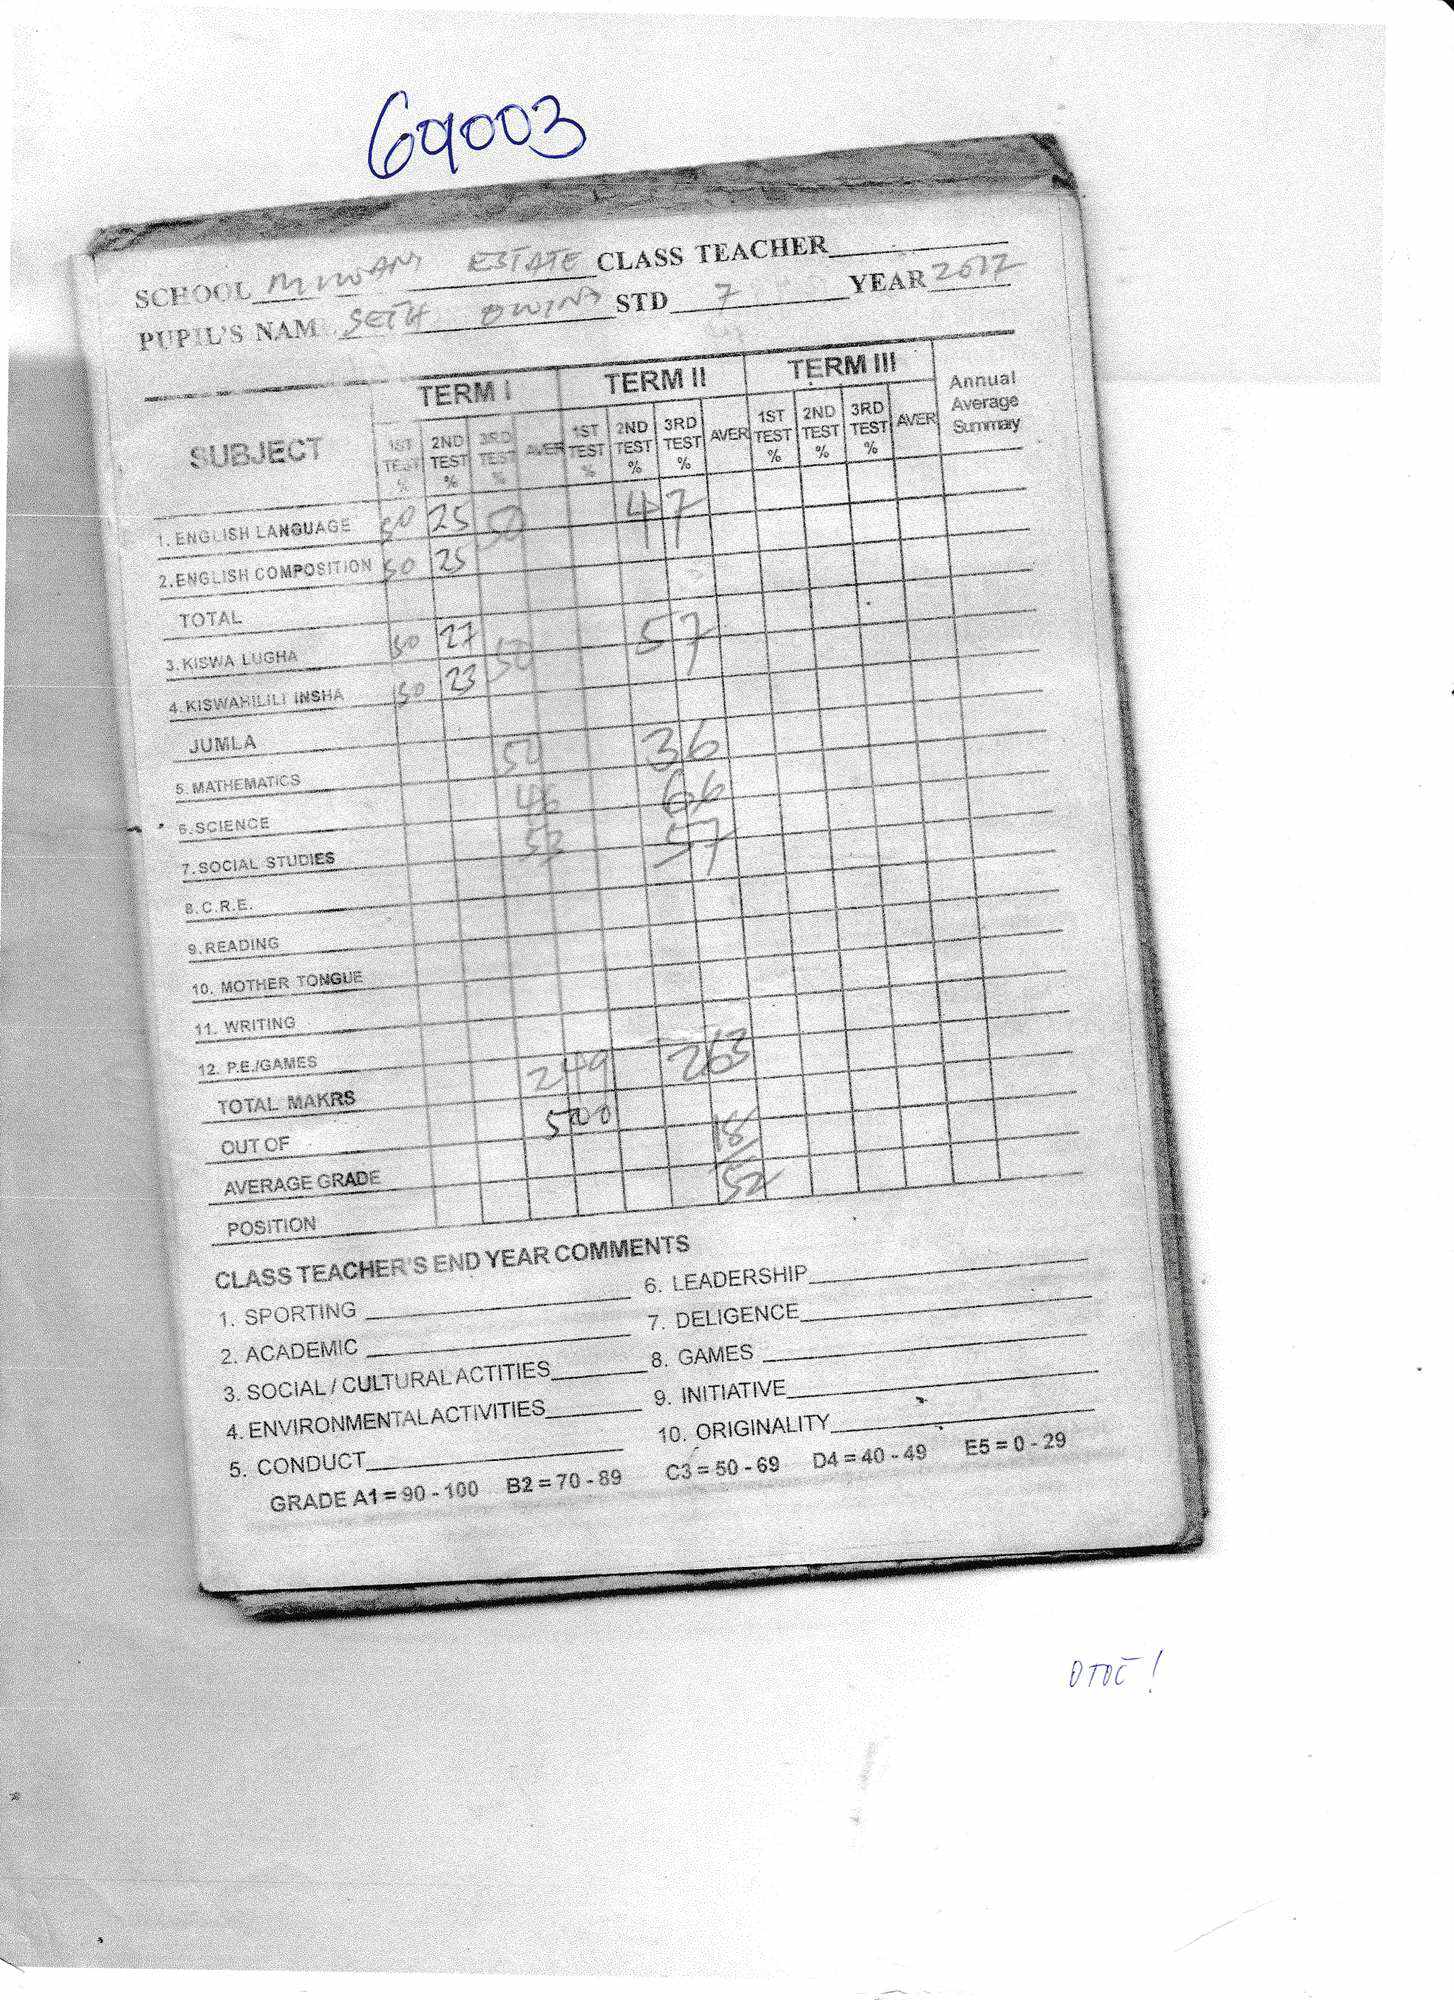 69003
SCHOOL MIWANI ESTATE CLASS TEACHER
PUPIL'S NAM SETH OWINO STD 7 YEAR 2012
SUBJECT TERM I TERM II TERM III Annual Average Summary
1ST TEST % 2ND TEST % 3RD TEST % AVER 1ST TEST % 2ND TEST % 3RD TEST % AVER 1ST TEST % 2ND TEST % 3RD TEST % AVER
1. ENGLISH LANGUAGE 50 25 50 47
2. ENGLISH COMPOSITION 50 25
TOTAL
3. KISWA LUGHA 50 27 50 57
4. KISWAHILILI INSHA 50 23
JUMLA
5. MATHEMATICS 50 36
6. SCIENCE 46 66
7. SOCIAL STUDIES 53 57
8. C.R.E.
9. READING
10. MOTHER TONGUE
11. WRITING
12. P.E./GAMES
TOTAL MAKRS 249 263
OUT OF 500
AVERAGE GRADE 18/
POSITION 52
CLASS TEACHER'S END YEAR COMMENTS
1. SPORTING 6. LEADERSHIP
2. ACADEMIC 7. DELIGENCE
3. SOCIAL / CULTURAL ACTITIES 8. GAMES
4. ENVIRONMENTAL ACTIVITIES 9. INITIATIVE
5. CONDUCT 10. ORIGINALITY
GRADE A1 = 90 - 100 B2 = 70 - 89 C3 = 50 - 69 D4 = 40 - 49 E5 = 0 - 29